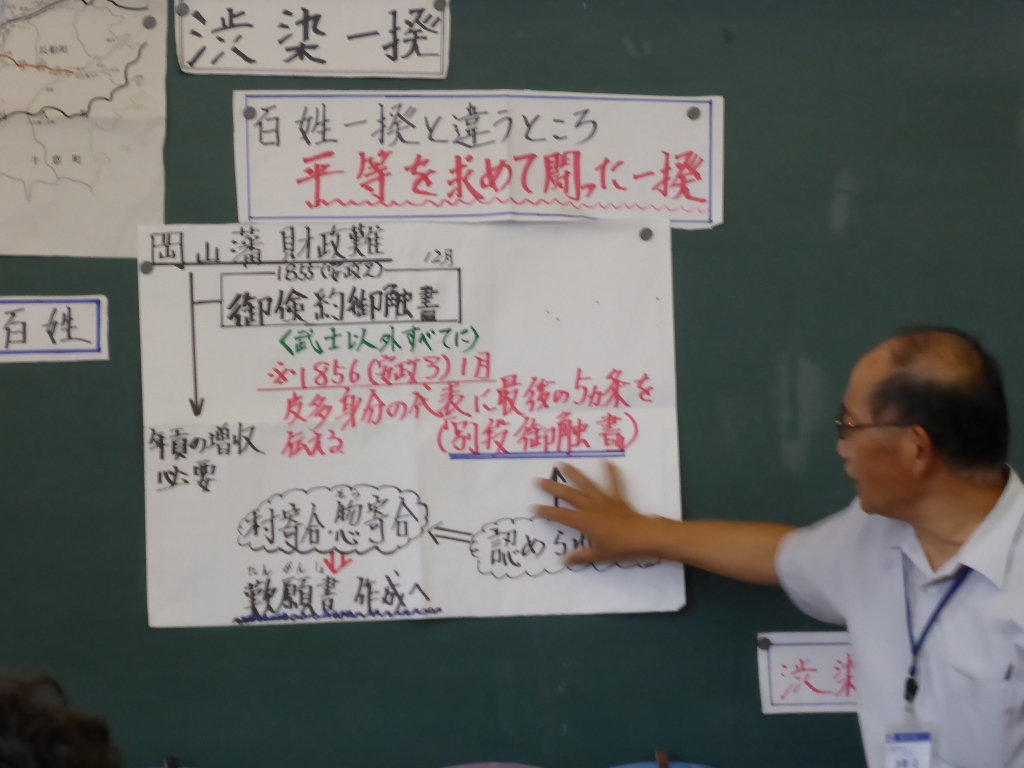 長船町
牛窓町
渋染一揆
百姓一揆と違うところ
平等を求めて闘った一揆
岡山藩 財政難
1855(安政2) 12月
御倹約御触書
<武士以外すべてに>
※1856(安政3)1月
皮多身分の代表に最後の5カ条を
伝える (別段御触書)
百姓
年貢の増収
必要
村寄合 惣寄合
そう
認めら
たん がんしょ
歎願書 作成へ
渋染